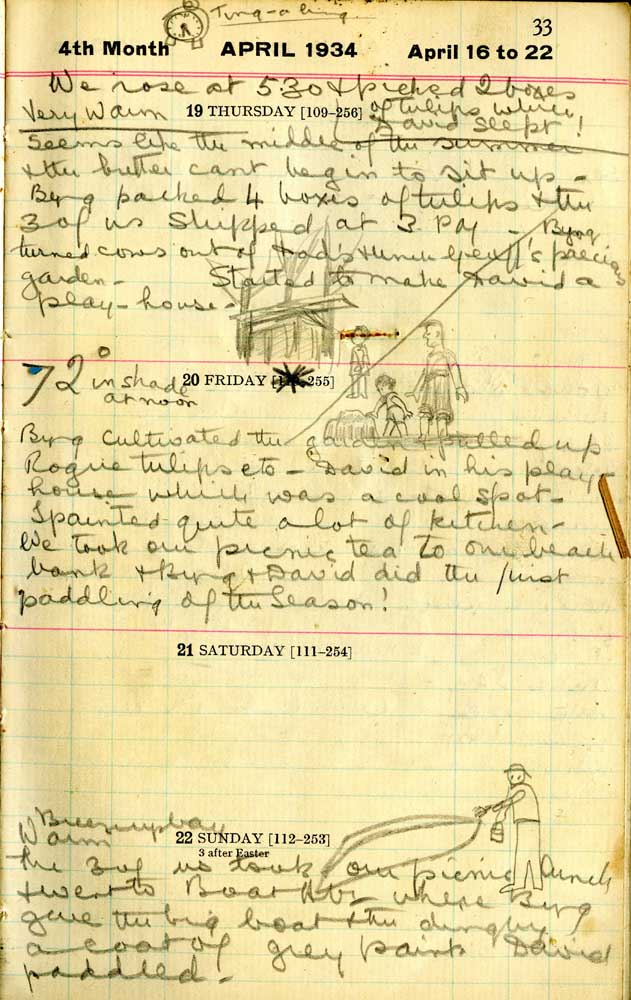 Ting-a-ling
33
4th Month APRIL 1934 April 16 to 22
We rose at 5.30 & picked 2 boxes
of tulips while
Very Warm 19 THURSDAY [109–256] David slept!
Seems like the middle of the summer
& the butter cant begin to sit up –
Byng packed 4 boxes of tulips & the
3 of us Shipped at 3 PM – Byng
turned cows out of Dad's & Uncle Geoff's precious
garden – Started to make David a
play-house –
72° in shade 20 FRIDAY [ 255]
at noon
Byng cultivated the garden & pulled up
Rogue tulips etc – David in his play-
house which was a cool spot –
I painted quite a lot of kitchen –
We took our picnic tea to our beach
bank & Byng & David did the first
paddling of the Season!
21 SATURDAY [111–254]
Warm 22 SUNDAY [112–253]
3 after Easter
the 3 of us took our picnic lunch
& went to Boat where Byng
gave the big boat & the dinghy
a coat of grey paint David
paddled –